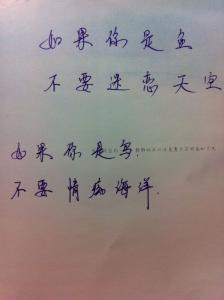 如果你是鱼
不要迷恋天空
如果你是鸟,
不要情痴海洋.